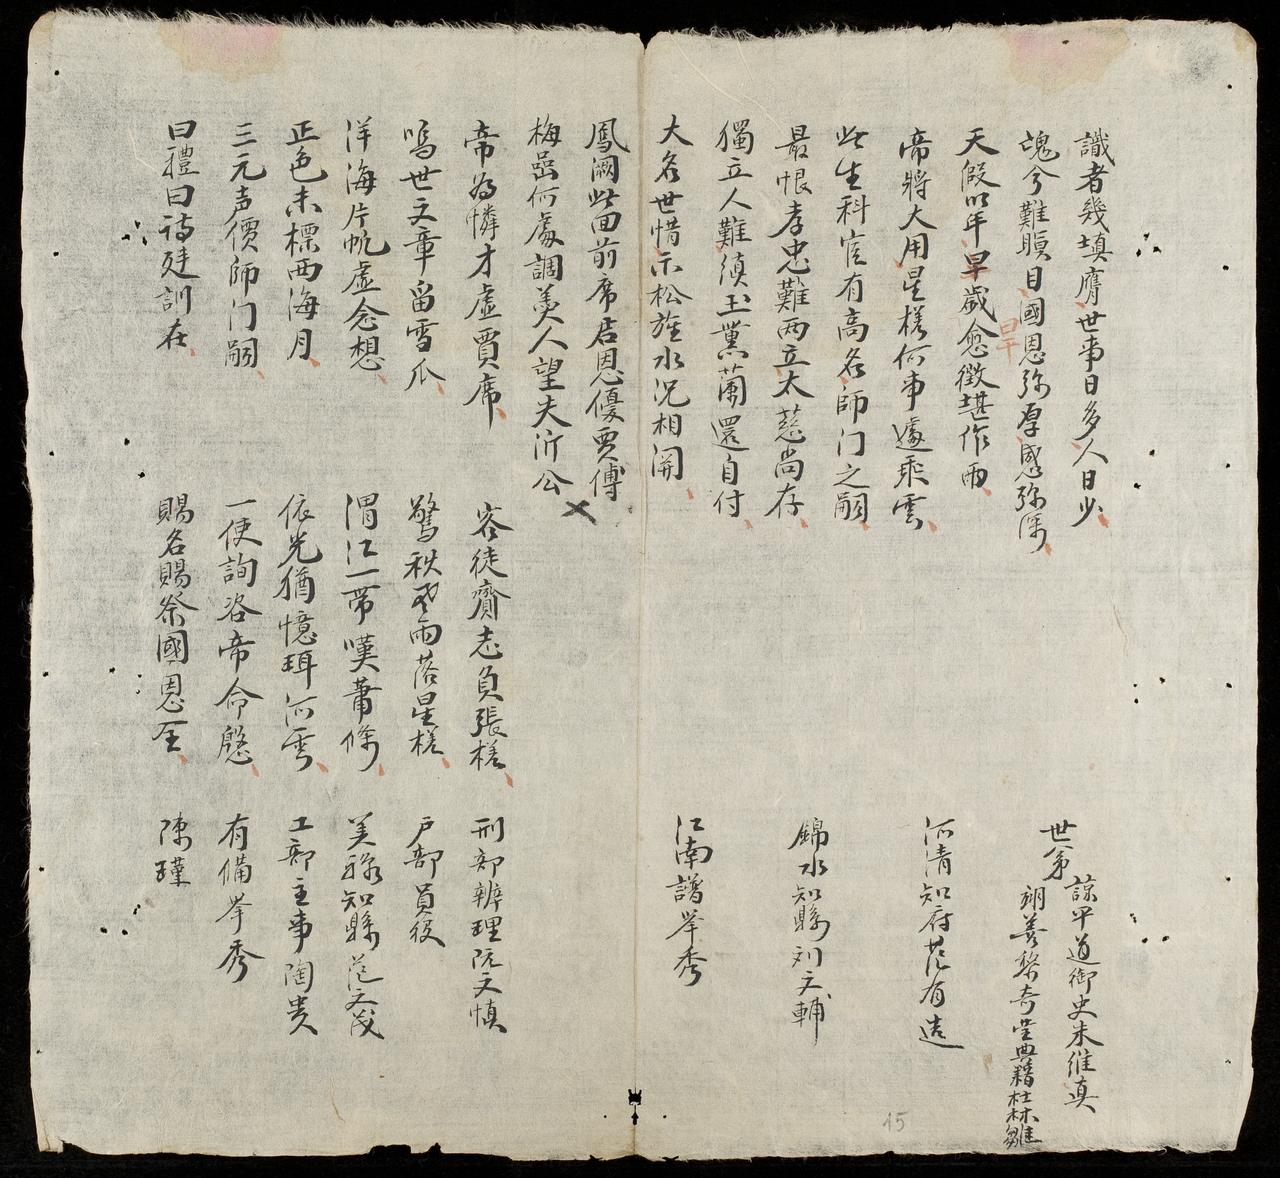 識者幾填膺世事日多人日少
魂兮難瞑目國恩弥厚感弥深
世弟
諒平道御史朱維真
翊善黎奇
堂典籍杜林雛
天假以年早歲愈徵堪作雨
早
帝將大用星槎何事遽乘雲
河清知府范有造
此生科宦有高名師门之嗣
最恨孝忠難两立太慈尚存
錦水知縣刘文輔
獨立人難須玉薰蘭還自付
大名世惜示松旌水况相関
江南譜举秀
鳳闕此回前席店恩優賈傅
梅嵒何處調羹人望夫沂公
帝為憐才虛賈席
客徒齎志負張槎
刑部辨理阮文慎
鳴世文章留雪爪
驚秋風雨落星槎
户部員役
洋海片帆虛念想
渭江一帶嘆蕭條
美祿知縣范文茂
正色未標西海月
依光猶憶珥河雲
工部主事陶贵
三元声價師门嗣
一使詢咨帝命慇
有備举秀
曰禮曰诗廷訓在
賜名賜祭國恩全
陳瑾
15